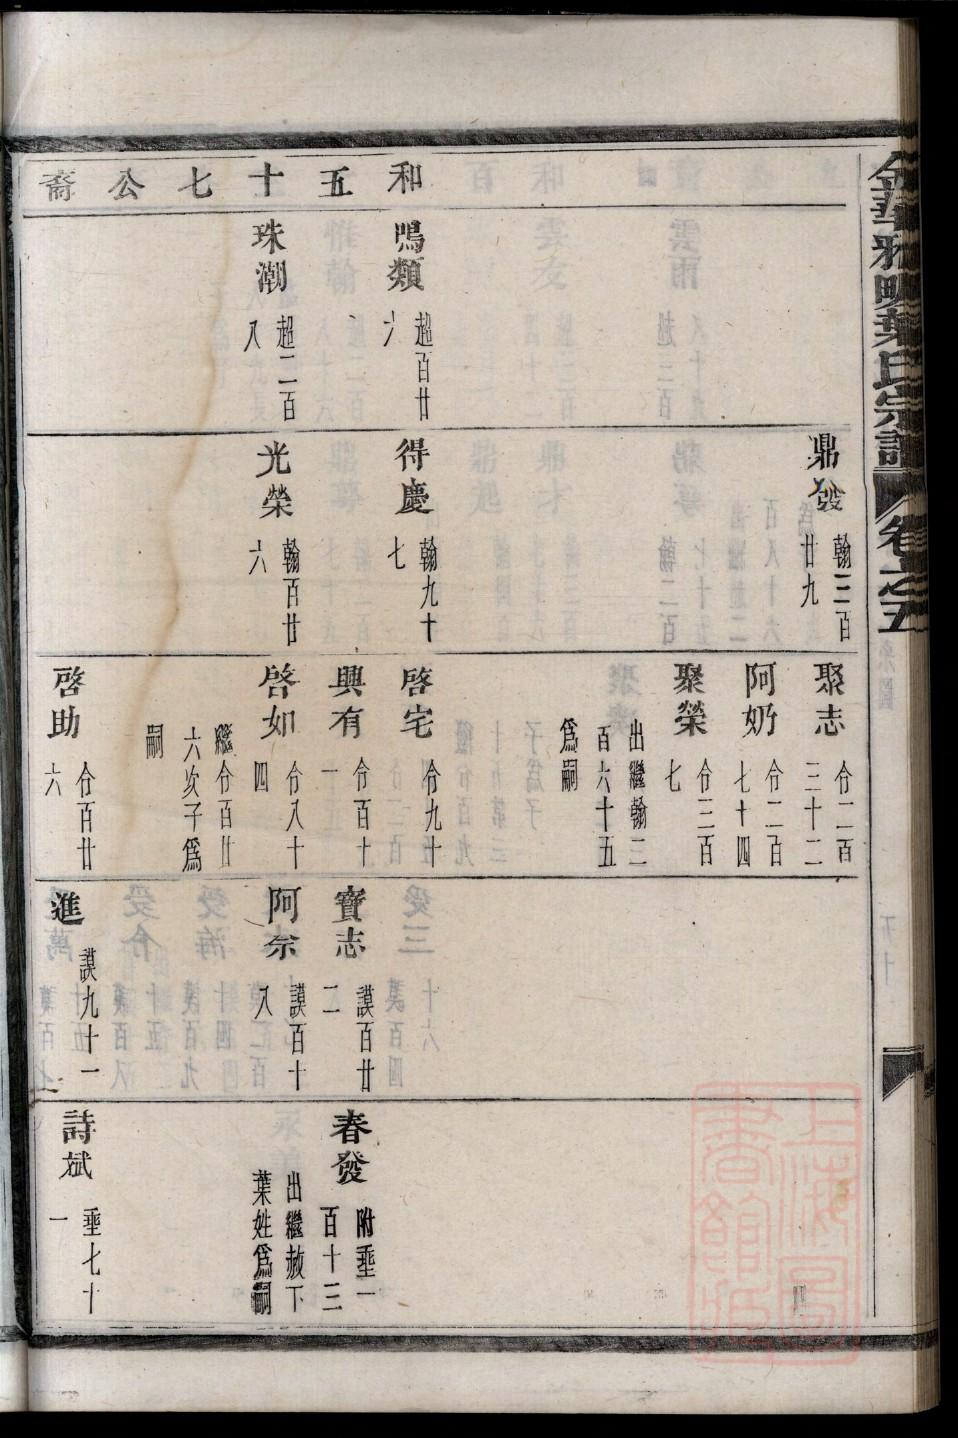 金華雅畈葉氏宗譜 卷之五
和五十七公裔
鳴類 超百廿六
珠潮 超二百八
鼎發 翰三百廿九
得慶 翰九十七
光榮 翰百廿六
聚志 仱二百三十二
阿奶 仱二百七十四
聚榮 仱三百七
出繼翰二百六十五爲嗣
啓宅 仱九十
興有 仱百十一
啓如 仱八十四
繼仱百廿六次子爲嗣
啓助 仱百廿六
寶志 謨百廿二
阿奈 謨百十八
進 謨九十一
春發 附垂一百十三
出繼赦下葉姓爲嗣
詩斌 垂七十一
上海圖書館藏